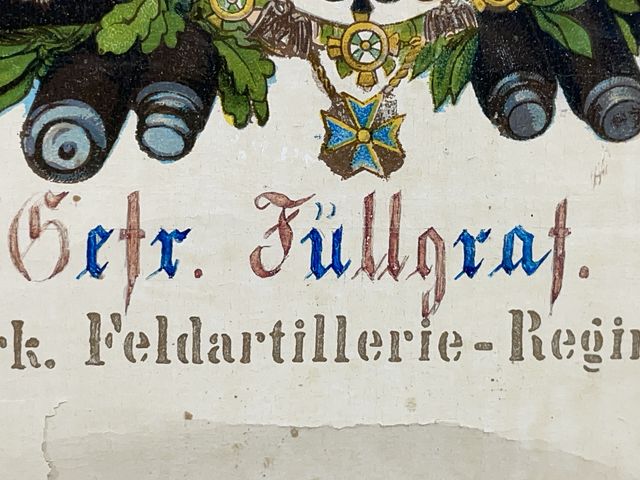 Gefr. Füllgraf.
rk. Feldartillerie-Regim